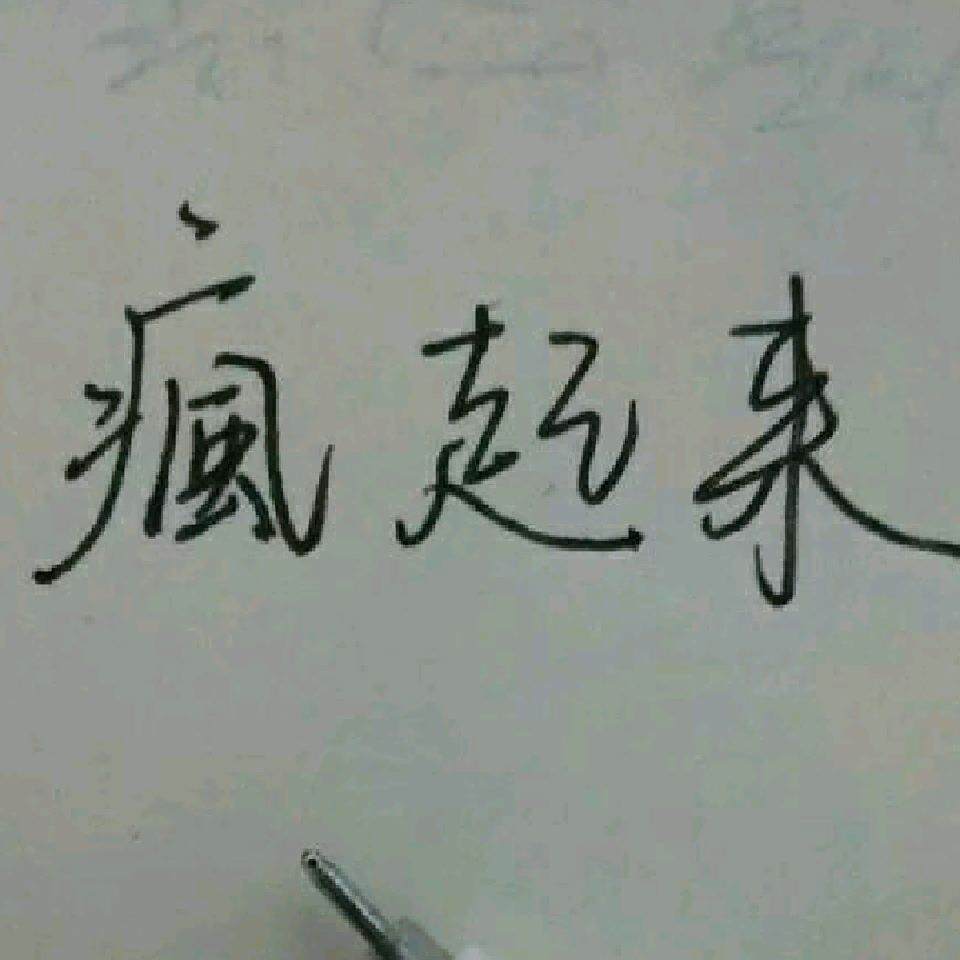 瘋起来